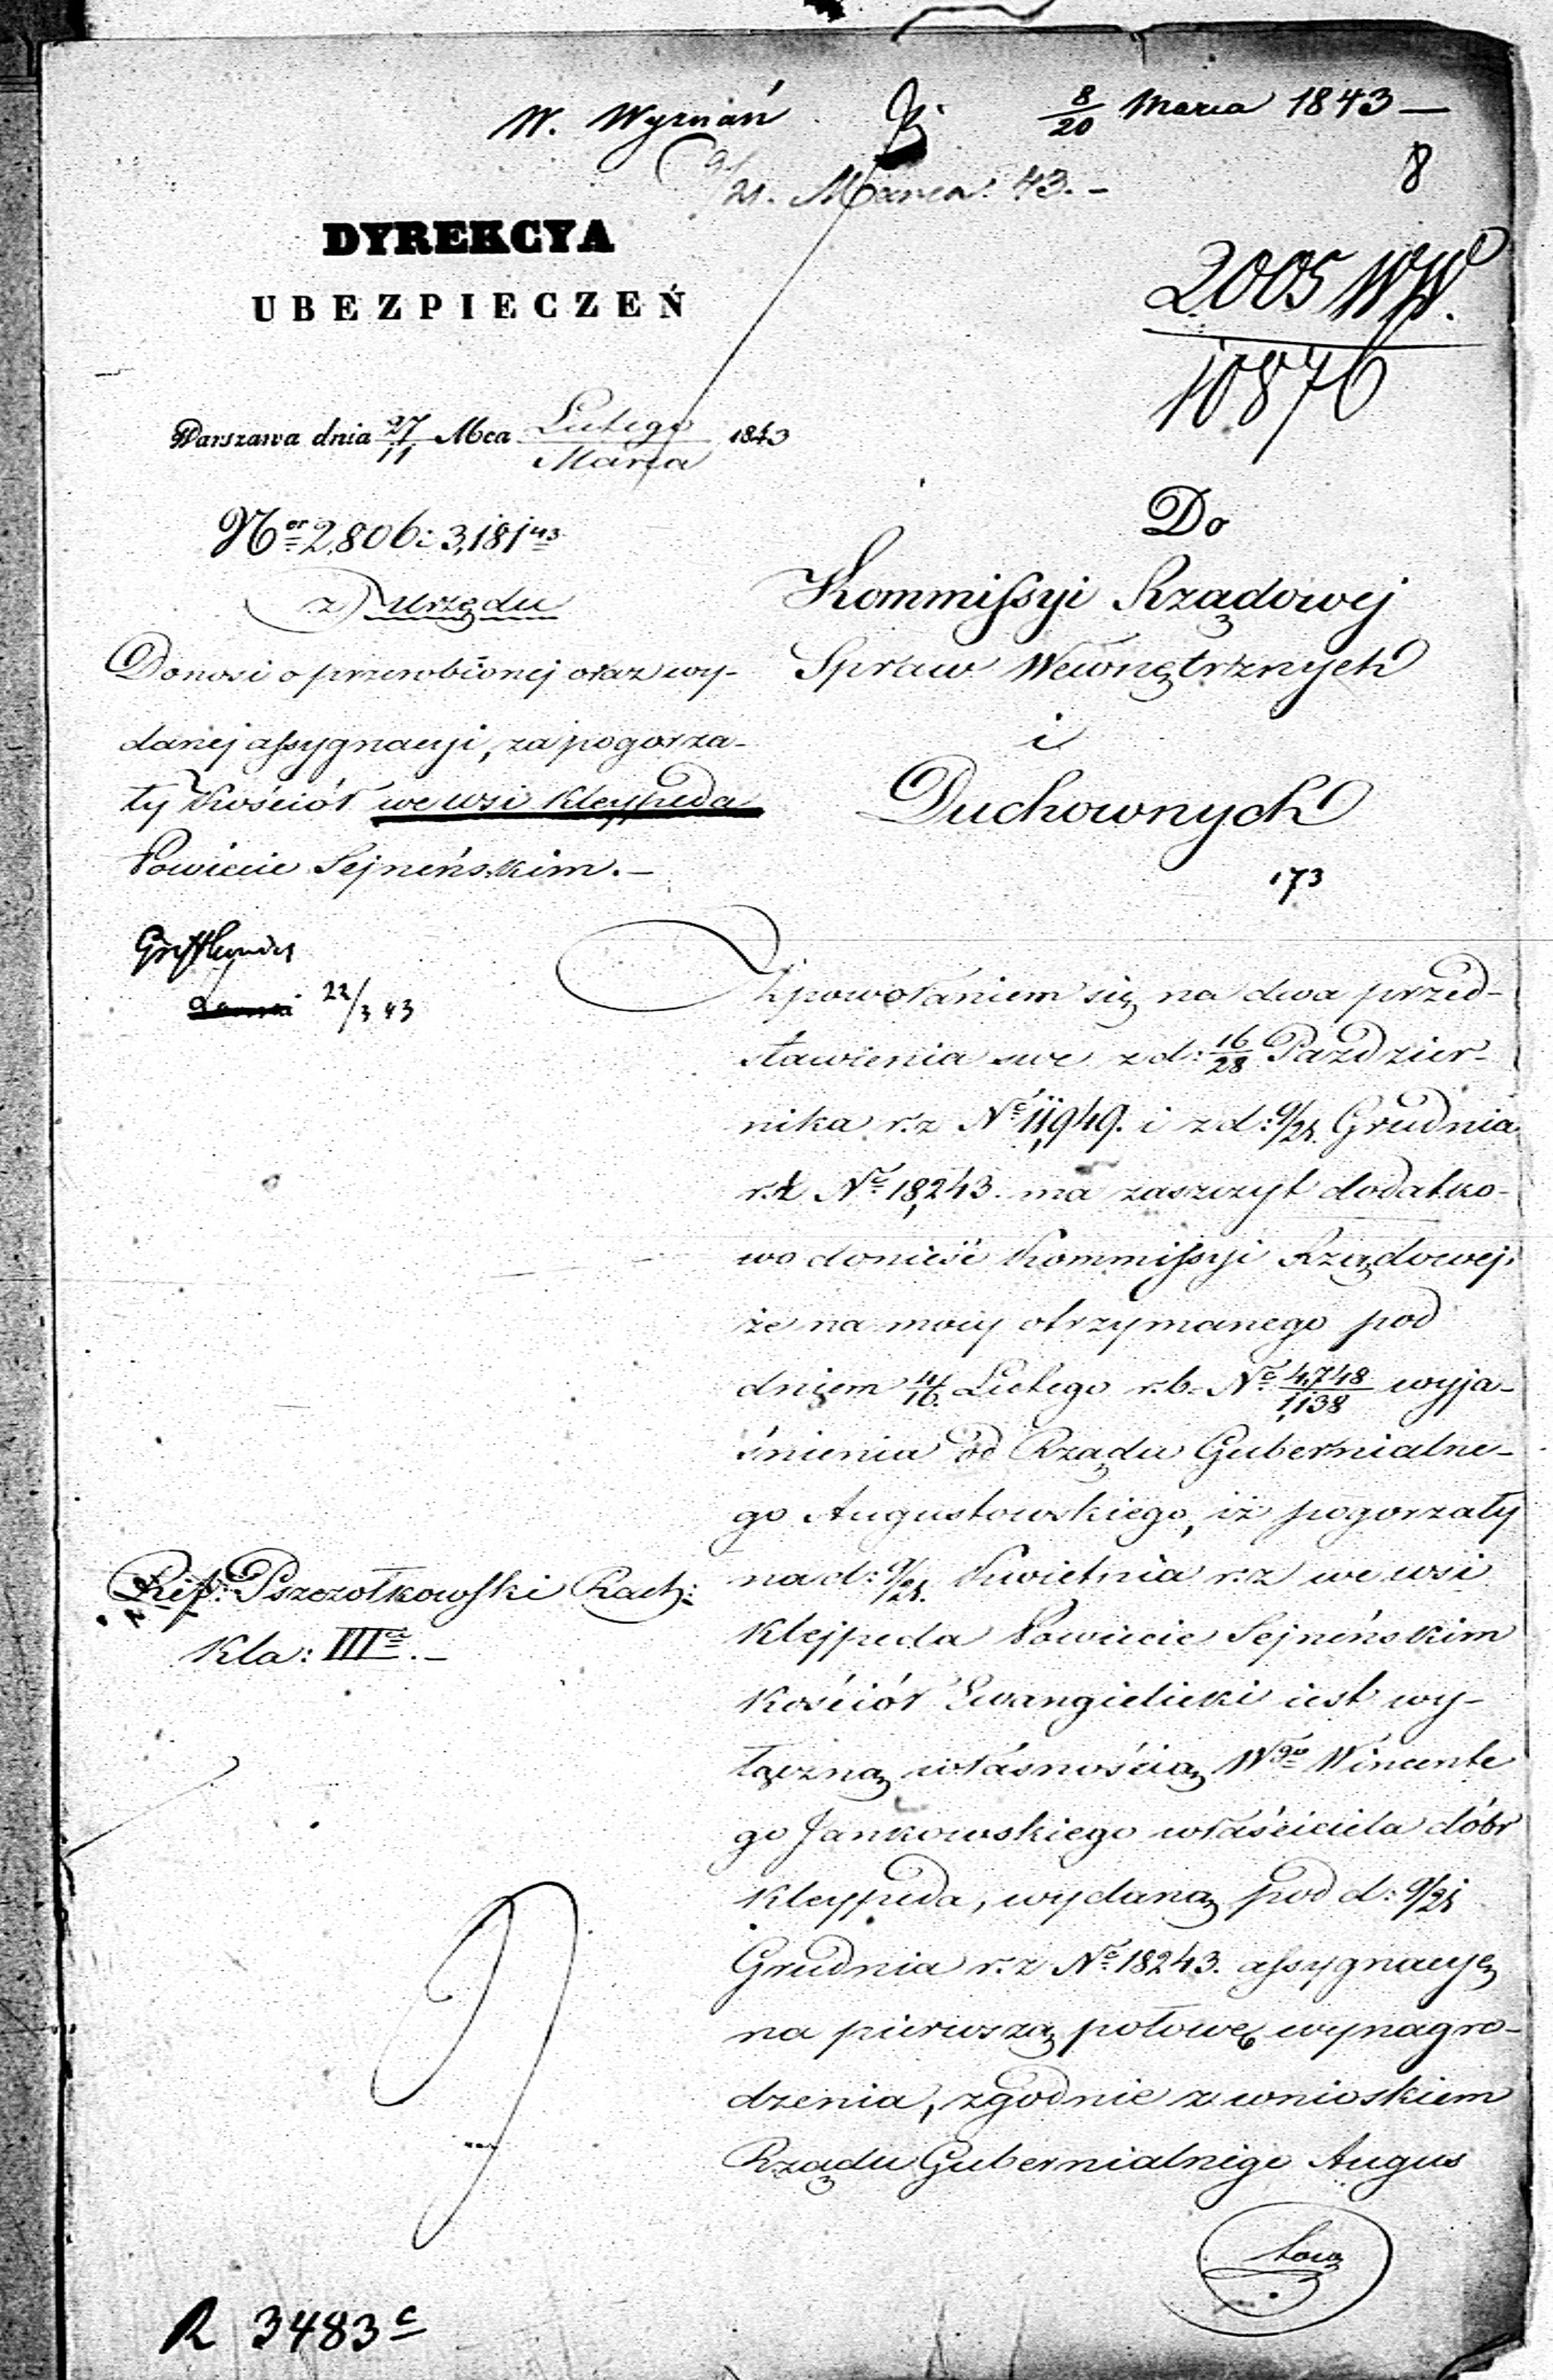 W. Wyznań 8/20 Marca 1843 —
9/21. Marca 43. –
8
DYREKCYA
UBEZPIECZEŃ
2005 WW.
10876
Warszawa dnia 27/11 Mca Lutego/Marca 1843
Ner 2,806: 3,181 43
z Urzędu
Donosi o przerobionej oraz wy-
danej assygnacyi, za pogorza-
ły Kościół we wsi Kleypeda
Powiecie Sejneńskim. —
22/3 43
Do
Kommissyi Rządowej
Spraw Wewnętrznych
i
Duchownych
173
Z powołaniem się na dwa przed-
stawienia swe z d: 16/28 Paździer-
nika r. z No 11,949. i z d: 9/21. Grudnia
r. z No 18,243. ma zaszczyt dodatko-
wo donieść Kommissyi Rządowej,
że na mocy otrzymanego pod
dniem 4/16. Lutego r. b. No 4,748/1,138 wyja-
śnienia od Rządu Gubernialne-
go Augustowskiego, iż pogorzały
na d: 9/21. Kwietnia r. z we wsi
Klejpeda Powiecie Sejneńskim
Kościół Ewangielicki iest wy-
łączną własnością Wgo Wincente
go Jankowskiego właściciela dóbr
Kleypeda, wydaną pod d: 9/21
Grudnia r. z No 18243. assygnacyę
na pierwszą połowę wynagro-
dzenia, zgodnie z wnioskiem
Rządu Gubernialnego Augus
tows
Ref: Pszczołkowski Rach:
Kla: III.–
R 3483 c